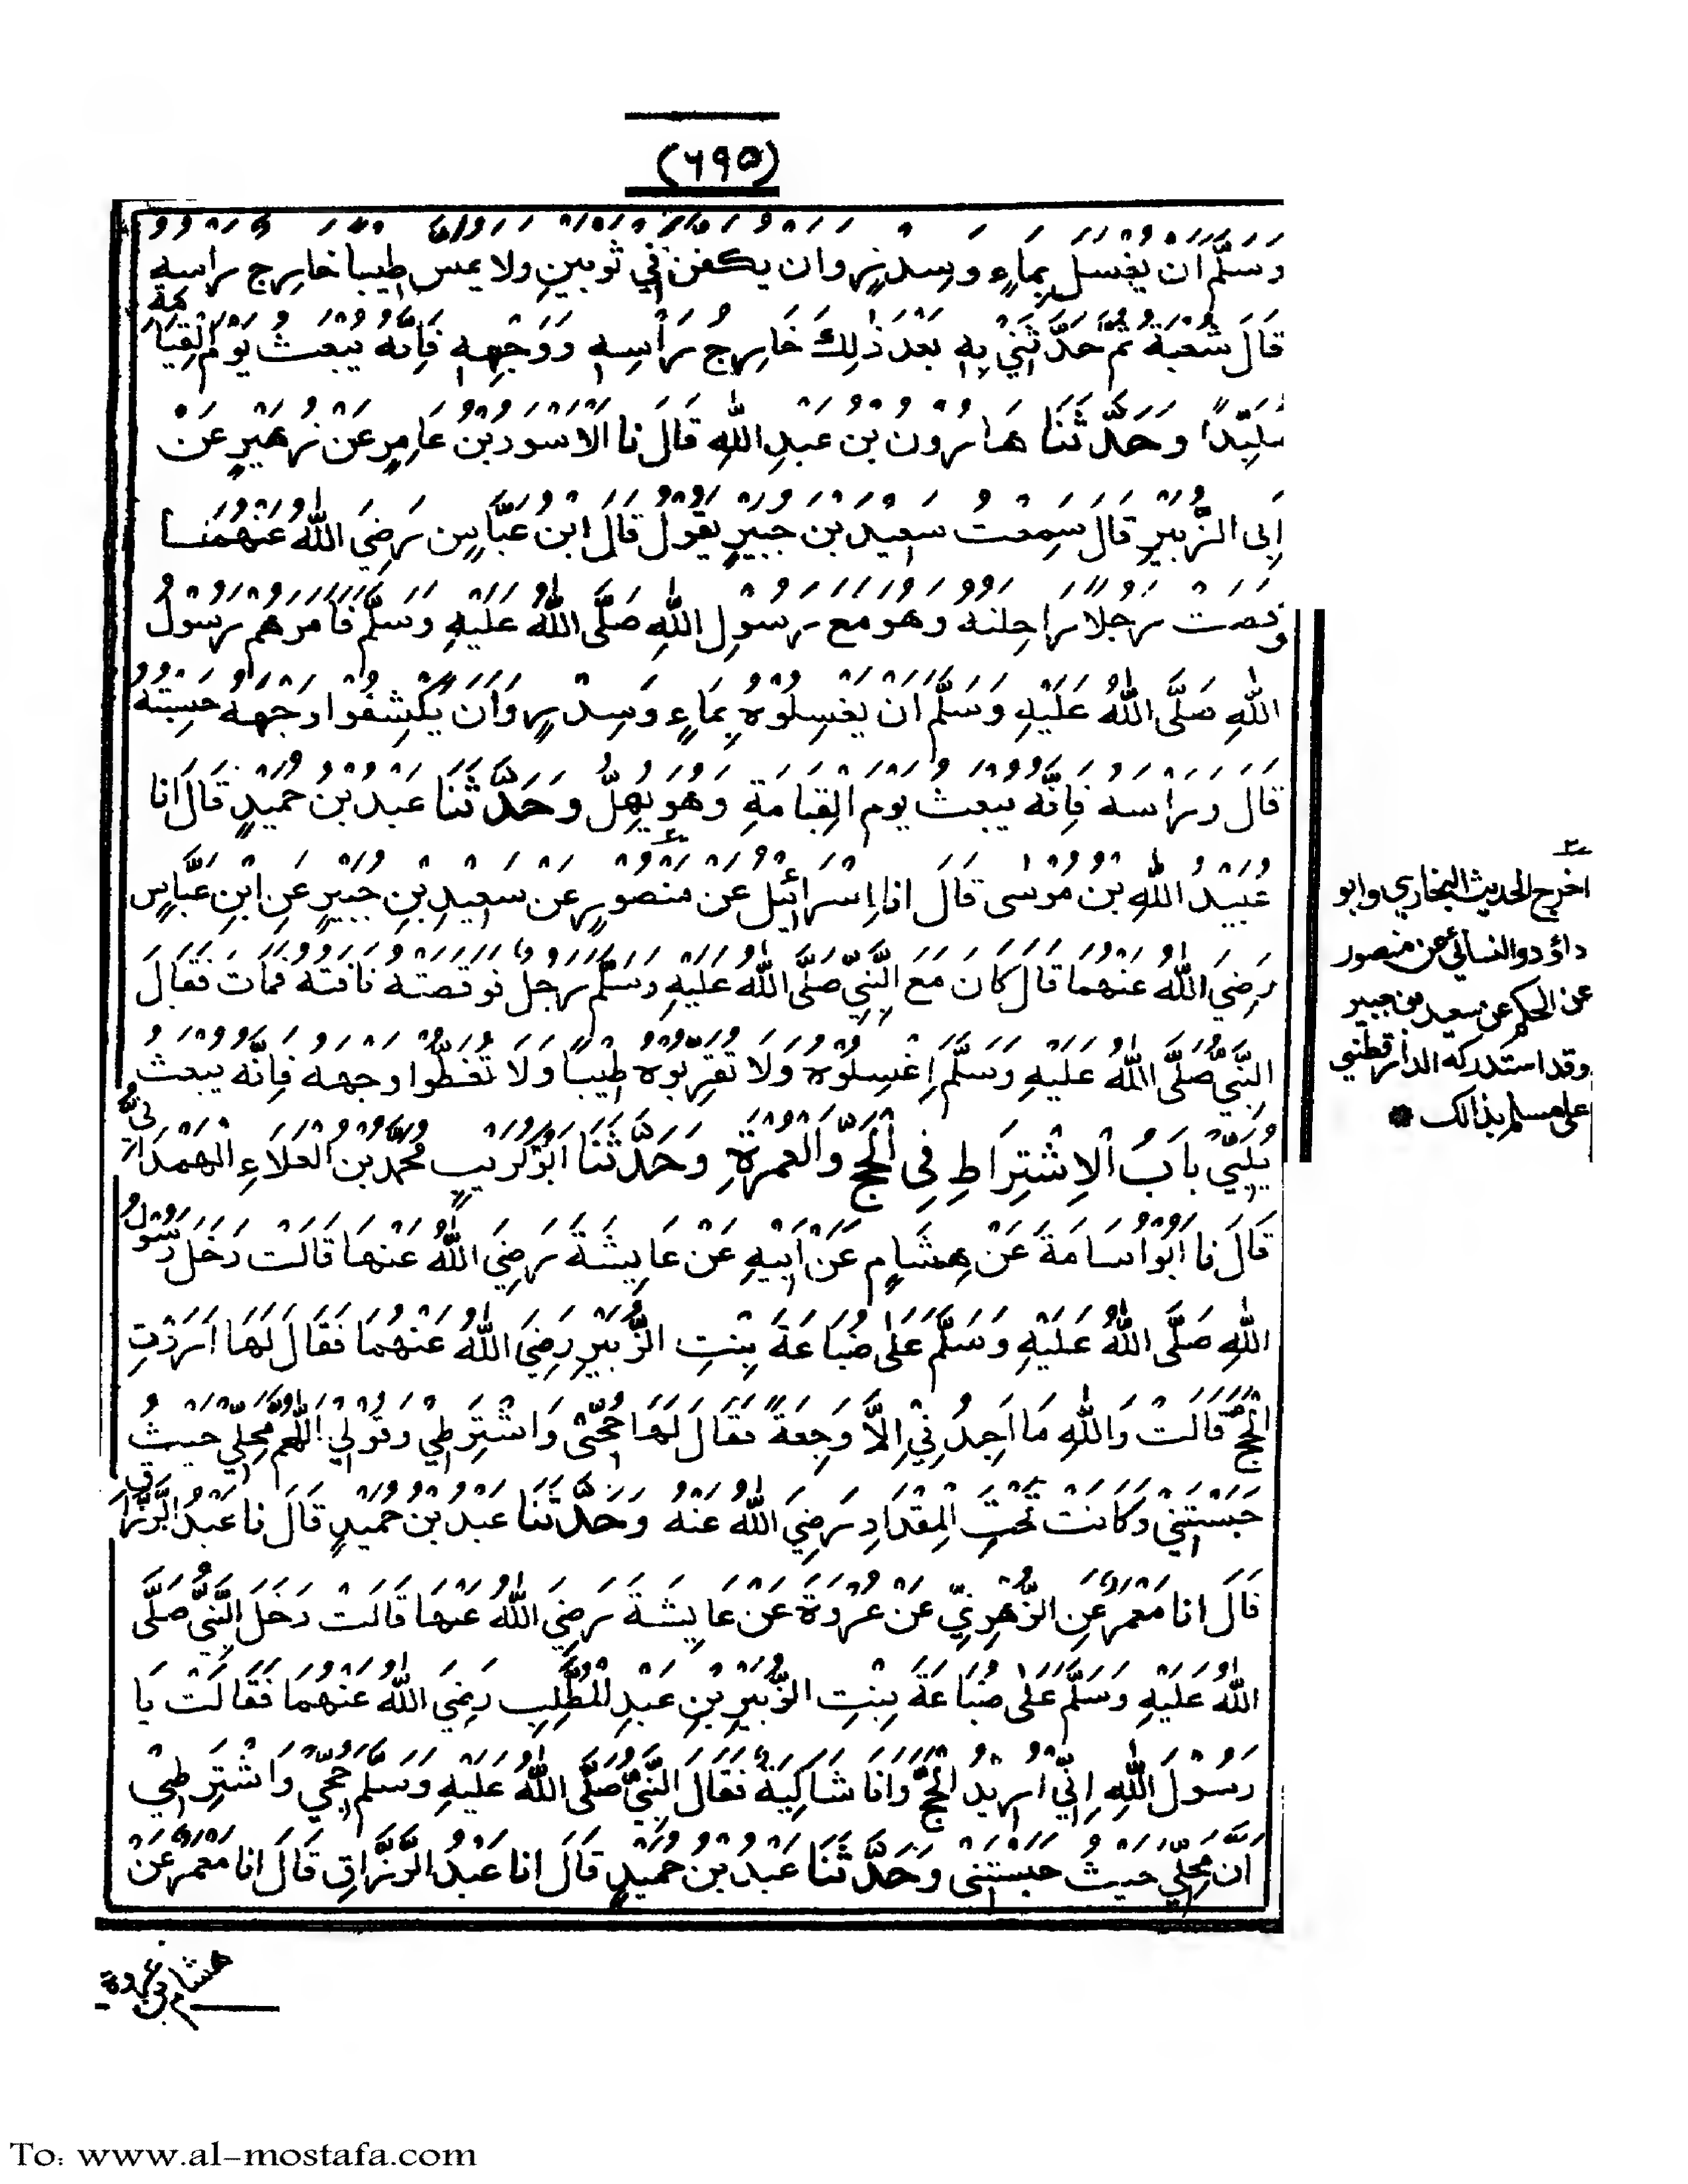 (٦٩٥)
وَسَلَّمَ اَنْ يُغْسَلَ بِمَاءٍ وَسِدْرٍ وَاَنْ يُكَفَّنَ فِي ثَوْبَيْنِ وَلَا يُمَسَّ طِيبًا خَارِجٌ رَاْسُهُ
قَالَ شُعْبَةُ ثُمَّ حَدَّثَنِيْ بِهِ بَعْدَ ذٰلِكَ خَارِجٌ رَأْسُهُ وَوَجْهُهُ فَاِنَّهُ يُبْعَثُ يَوْمَ الْقِيَامَةِ
مُلَبِّدًا وَحَدَّثَنَا هَارُوْنُ بْنُ عَبْدِ اللّٰهِ قَالَ نا الْاَسْوَدُ بْنُ عَامِرٍ عَنْ زُهَيْرٍ عَنْ
اَبِى الزُّبَيْرِ قَالَ سَمِعْتُ سَعِيْدَ بْنَ جُبَيْرٍ يَقُوْلُ قَالَ ابْنُ عَبَّاسٍ رَضِيَ اللّٰهُ عَنْهُمَا
وَقَصَتْ رَجُلًا رَاحِلَتُهُ وَهُوَ مَعَ رَسُوْلِ اللّٰهِ صَلَّى اللّٰهُ عَلَيْهِ وَسَلَّمَ فَاَمَرَهُمْ رَسُوْلُ
اللّٰهِ صَلَّى اللّٰهُ عَلَيْهِ وَسَلَّمَ اَنْ يَغْسِلُوْهُ بِمَاءٍ وَسِدْرٍ وَاَنْ يَكْشِفُوْا وَجْهَهُ حَسِبْتُهُ
قَالَ وَرَاْسَهُ فَاِنَّهُ يُبْعَثُ يَوْمَ الْقِيَامَةِ وَهُوَ يُهِلُّ وَحَدَّثَنَا عَبْدُ بْنُ حُمَيْدٍ قَالَ انا
عُبَيْدُ اللّٰهِ بْنُ مُوْسٰى قَالَ انا اِسْرَائِيْلُ عَنْ مَنْصُوْرٍ عَنْ سَعِيْدِ بْنِ جُبَيْرٍ عَنِ ابْنِ عَبَّاسٍ
رَضِيَ اللّٰهُ عَنْهُمَا قَالَ كَانَ مَعَ النَّبِيِّ صَلَّى اللّٰهُ عَلَيْهِ وَسَلَّمَ رَجُلٌ فَوَقَصَتْهُ نَاقَتُهُ فَمَاتَ فَقَالَ
النَّبِيُّ صَلَّى اللّٰهُ عَلَيْهِ وَسَلَّمَ اِغْسِلُوْهُ وَلَا تُقَرِّبُوْهُ طِيْبًا وَلَا تُغَطُّوْا وَجْهَهُ فَاِنَّهُ يُبْعَثُ
يُلَبِّيْ بَابُ الْاِشْتِرَاطِ فِى الْحَجِّ وَالْعُمْرَةِ وَحَدَّثَنَا اَبُوْ كُرَيْبٍ مُحَمَّدُ بْنُ الْعَلَاءِ الْهَمْدَانِيُّ
قَالَ نا اَبُوْ اُسَامَةَ عَنْ هِشَامٍ عَنْ اَبِيْهِ عَنْ عَايِشَةَ رَضِيَ اللّٰهُ عَنْهَا قَالَتْ دَخَلَ رَسُوْلُ
اللّٰهِ صَلَّى اللّٰهُ عَلَيْهِ وَسَلَّمَ عَلٰى ضُبَاعَةَ بِنْتِ الزُّبَيْرِ رَضِيَ اللّٰهُ عَنْهُمَا فَقَالَ لَهَا اَرَدْتِ
الْحَجَّ قَالَتْ وَاللّٰهِ مَا اَجِدُنِيْ اِلَّا وَجِعَةً فَقَالَ لَهَا حُجِّى وَاشْتَرِطِيْ وَقُوْلِيْ اللّٰهُمَّ مَحِلِّيْ حَيْثُ
حَبَسْتَنِيْ وَكَانَتْ تَحْتَ الْمِقْدَادِ رَضِيَ اللّٰهُ عَنْهُ وَحَدَّثَنَا عَبْدُ بْنُ حُمَيْدٍ قَالَ نا عَبْدُ الرَّزَّاقِ
قَالَ انا مَعْمَرٌ عَنِ الزُّهْرِيِّ عَنْ عُرْوَةَ عَنْ عَايِشَةَ رَضِيَ اللّٰهُ عَنْهَا قَالَتْ دَخَلَ النَّبِيُّ صَلَّى
اللّٰهُ عَلَيْهِ وَسَلَّمَ عَلٰى ضُبَاعَةَ بِنْتِ الزُّبَيْرِ بْنِ عَبْدِ الْمُطَّلِبِ رَضِيَ اللّٰهُ عَنْهُمَا فَقَالَتْ يَا
رَسُوْلَ اللّٰهِ اِنِّيْ اُرِيْدُ الْحَجَّ وَانَا شَاكِيَةٌ فَقَالَ النَّبِيُّ صَلَّى اللّٰهُ عَلَيْهِ وَسَلَّمَ حُجِّيْ وَاشْتَرِطِيْ
اَنَّ مَحِلِّيْ حَيْثُ حَبَسْتَنِى وَحَدَّثَنَا عَبْدُ بْنُ حُمَيْدٍ قَالَ انا عَبْدُ الرَّزَّاقِ قَالَ انا مَعْمَرٌ عَنْ
هشام بن عروة
اخرج الحديث البخاري وابو
داؤد والنسائي عن منصور
عن الحكم عن سعيد بن جبير
وقد استدركه الدارقطني
على مسلم بذالك *
To: www.al-mostafa.com